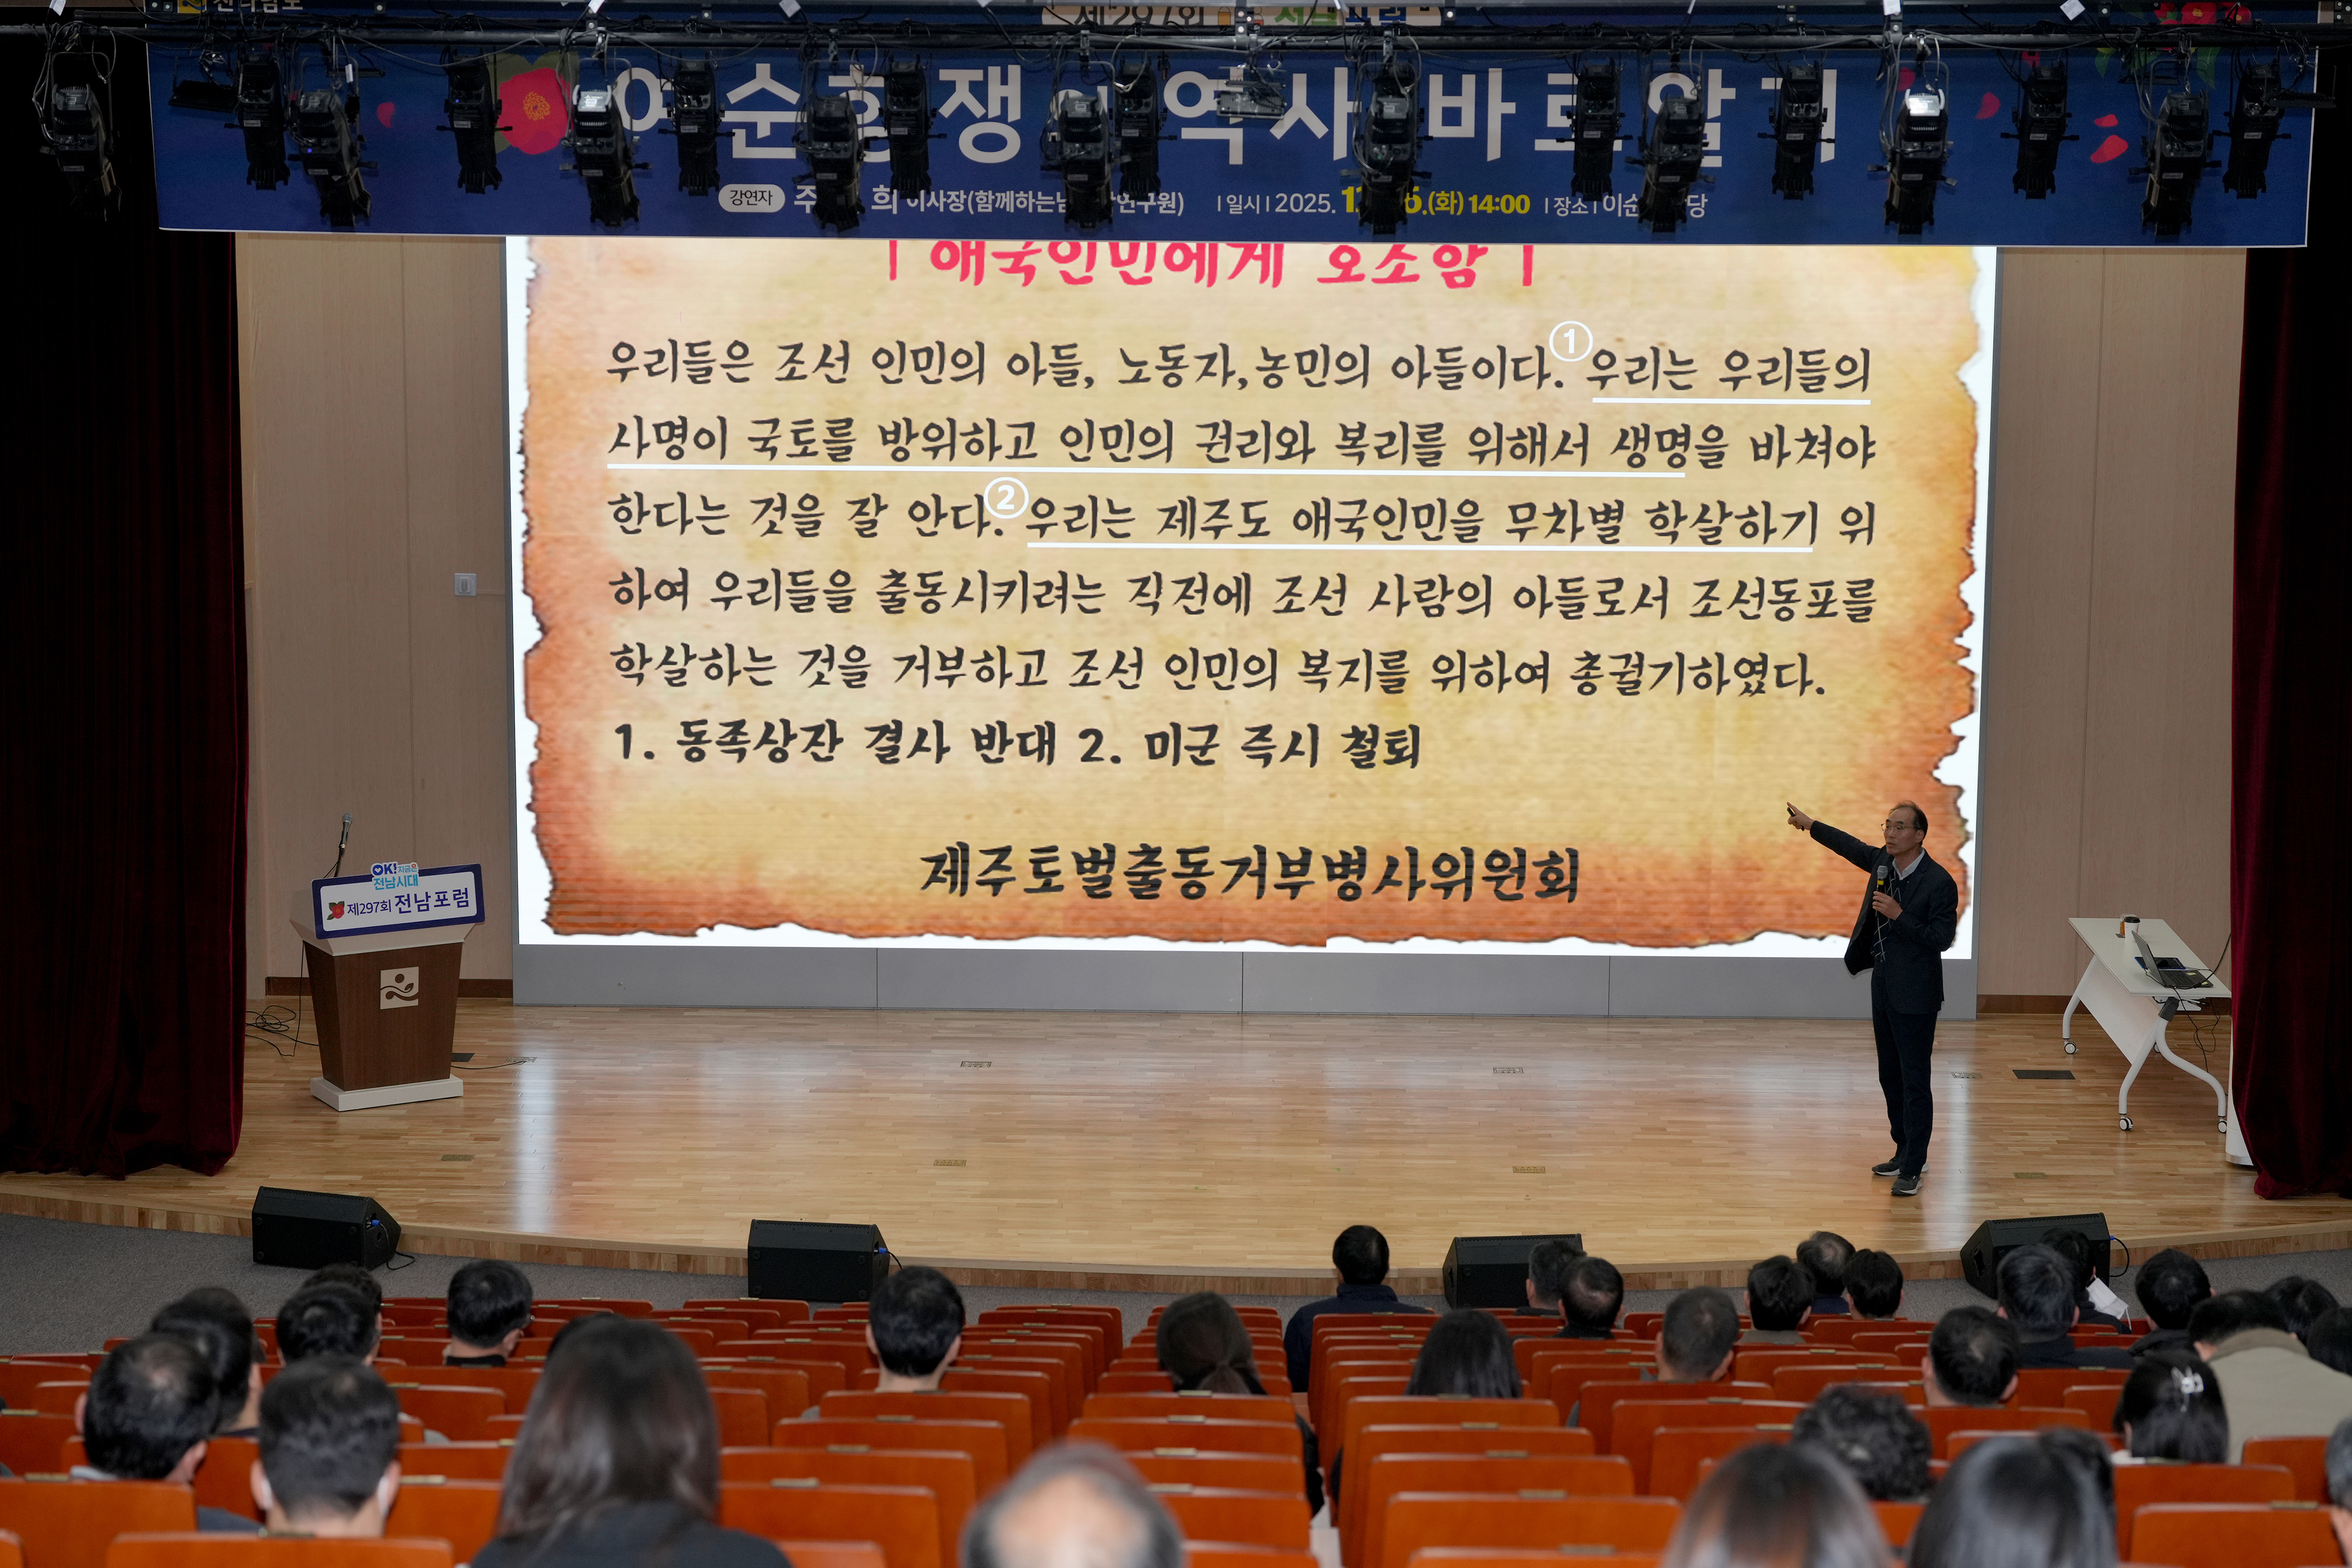 전라남도
제297회 전남포럼
여순항쟁의 역사 바로알기
강연자 주 희 이사장(함께하는남 연구원) | 일시 | 2025. (화) 14:00 | 장소 | 이순 당
| 애국인민에게 호소함 |
우리들은 조선 인민의 아들, 노동자,농민의 아들이다. ① 우리는 우리들의
사명이 국토를 방위하고 인민의 권리와 복리를 위해서 생명을 바쳐야
한다는 것을 잘 안다. ② 우리는 제주도 애국인민을 무차별 학살하기 위
하여 우리들을 출동시키려는 직전에 조선 사람의 아들로서 조선동포를
학살하는 것을 거부하고 조선 인민의 복지를 위하여 총궐기하였다.
1. 동족상잔 결사 반대 2. 미군 즉시 철퇴
제주토벌출동거부병사위원회
OK! 지금은
전남시대
제297회 전남포럼